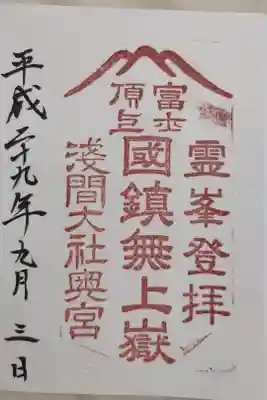 霊峯登拝
富士
頂上
國鎮無上嶽
淺間大社奥宮
平成二十九年九月三日